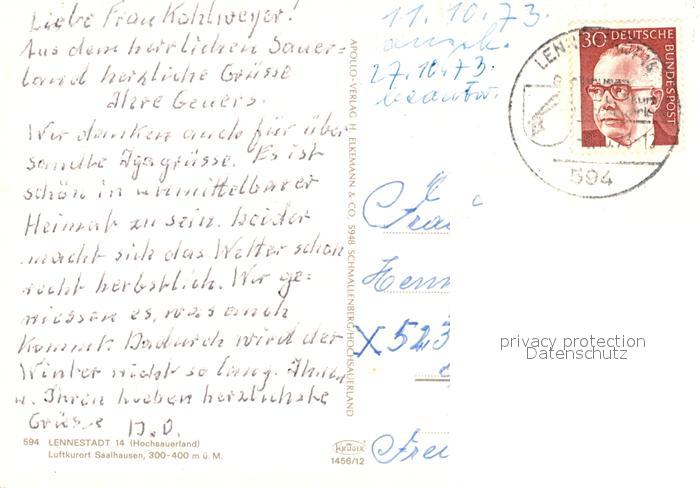 Liebe Frau Kohlweyer!
Aus dem herrlichen Sauer-
land herzliche Grüsse
Ihre Geuers.
Wir danken auch für über
sandte Igagrüsse. Es ist
schön in unmittelbarer
Heimat zu sein. Leider
macht sich das Wetter schon
recht herbstlich. Wir ge=
niessen es, was auch
kommt. Dadurch wird der
Winter nicht so lang. Ihnen
u. Ihren lieben herzlichste
Grüsse D.O.
594 LENNESTADT 14 (Hochsauerland)
Luftkurort Saalhausen, 300-400 m ü. M.
APOLLO-VERLAG H. ELKEMANN & CO, 5948 SCHMALLENBERG/HOCHSAUERLAND
KRÜGER
1456/12
11.10.73.
27.10.73.
Frau
Henn
X 523
Frei
30 DEUTSCHE
BUNDESPOST
LENNESTADT
594
privacy protection
Datenschutz